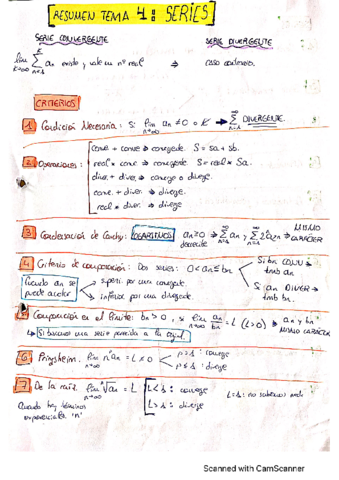 RESUMEN TEMA 4: SERIES
SERIE CONVERGENTE
SERIE DIVERGENTE
lim k→∞ ∑ n=1 k an existe y vale un nº real ⇒ caso contrario.
CRITERIOS
1 Condición Necesaria: Si lim n→∞ an ≠ 0 o ∄ ⇒ ∑ n=1 ∞ DIVERGENTE.
2 Operaciones:
conv. + conve ⇒ convergente. S = Sa + Sb.
real * conv ⇒ convergente. S = real * Sa.
diver. + diver. ⇒ converge o diverge.
conv. + diver. ⇒ diverge.
real * diver. ⇒ diverge
3 Condensación de Cauchy: LOGARITMOS an ≥ 0 decreciente ⇒ ∑ n=1 ∞ an y ∑ n=1 ∞ 2ⁿa₂ⁿ ⇒ MISMO CARÁCTER
4 Criterio de comparación: Dos series: 0 < an ≤ bn
Si bn CONV ⇒ tmb an
Si an DIVER ⇒ tmb bn.
Cuando an se puede acotar
superi. por una convergente.
inferior por una divergente.
5 Comparación en el límite: bn > 0, si lim n→∞ an/bn = L (L > 0) ⇒ an y bn MISMO CARÁCTER
↳ Si buscamos una serie parecida a la original
6 Pringsheim. lim n→∞ nᵖ an = L ≠ 0
p > 1 : converge
p ≤ 1 : diverge
7 De la raíz. lim n→∞ ⁿ√an = L
L < 1 : converge
L > 1 : diverge
L = 1 : no sabemos nada
Cuando hay términos exponencial "n"
Scanned with CamScanner